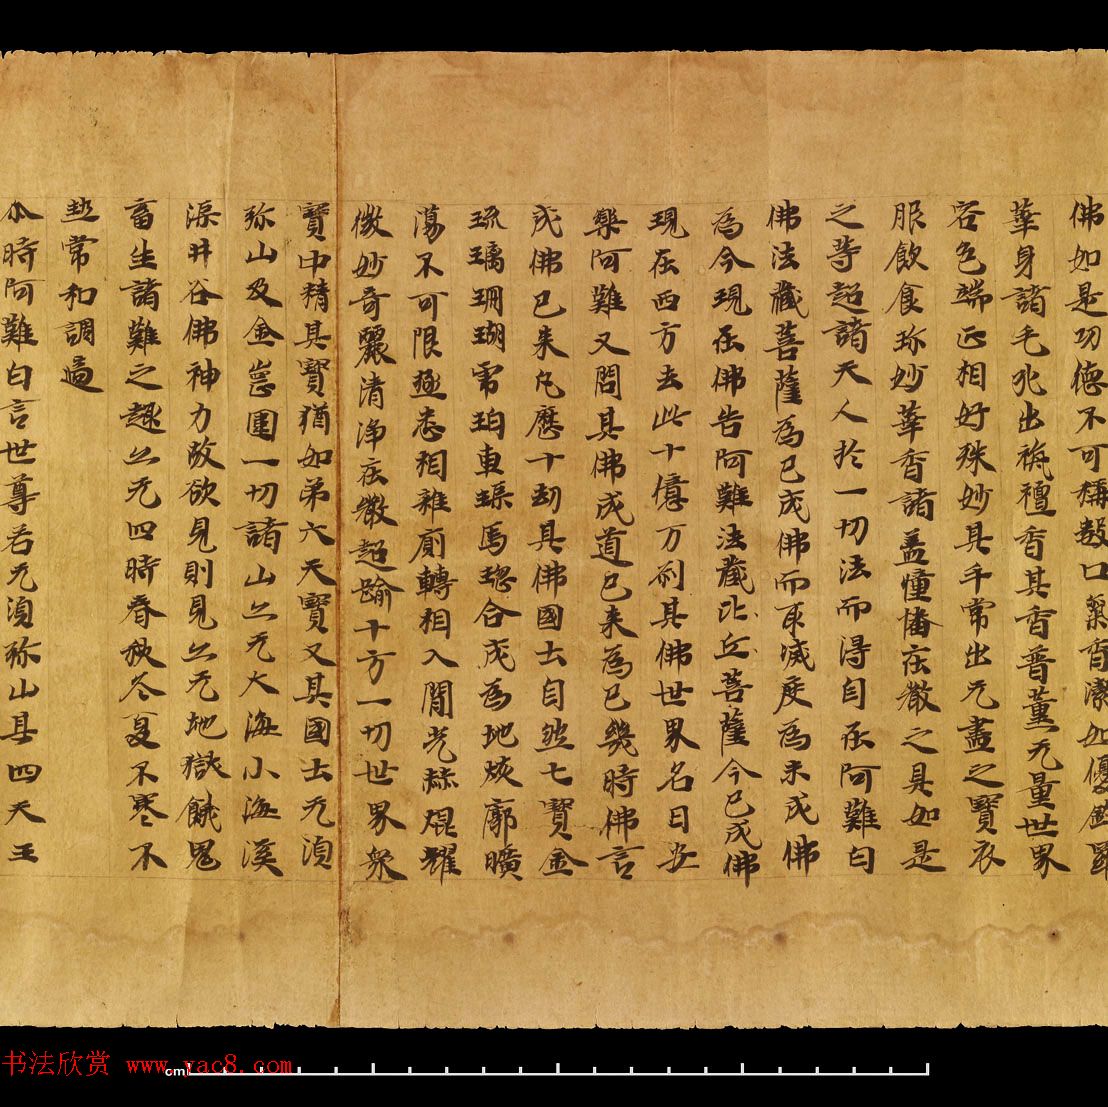 佛如是功德不可稱數口氣香潔如優鉢羅
華身諸毛孔出栴檀香其香普薰无量世界
容色端正相好殊妙其手常出无盡之寶衣
服飲食珎妙華香諸盖憧幡庄嚴之具如是
之等超諸天人於一切法而得自在阿難白
佛法藏菩薩為已成佛而取滅度為未成佛
為今現在佛告阿難法藏比丘菩薩今已成佛
現在西方去此十億万刹其佛世界名曰安
樂阿難又問其佛成道已来為已幾時佛言
成佛已来凡歷十劫其佛國土自然七寶金
琉璃珊瑚虎珀車𤦲馬瑙合成為地恢廓曠
蕩不可限極悉相雜廁轉相入間光赫焜耀
微妙奇麗清淨庄嚴超踰十方一切世界衆
寶中精其寶猶如弟六天寶又其國土无湏
弥山及金崗圍一切諸山亦无大海小海溪
渠井谷佛神力故欲見則見亦无地獄餓鬼
畜生諸難之趣亦无四時春秋冬夏不寒不
熱常和調適
尒時阿難白言世尊若无湏弥山其四天王
书法欣赏 www.yac8.com
cm